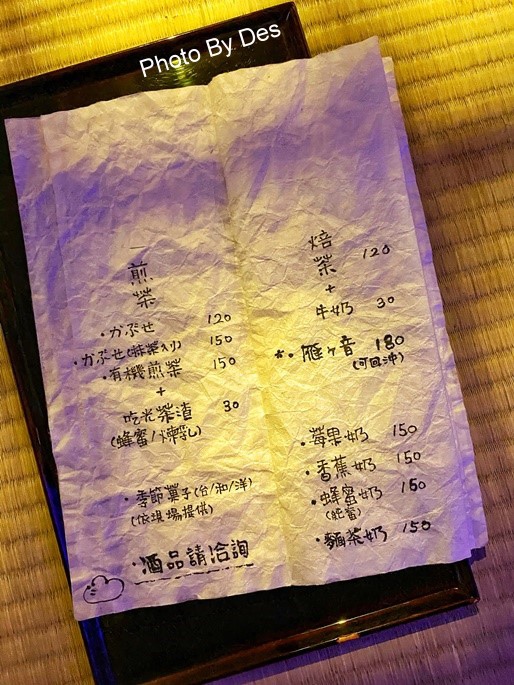 Photo By Des
煎
茶
・かぶせ 120
・かぶせ(抹茶入り) 150
・有機煎茶 150
+
吃光茶渣 30
(蜂蜜/煉乳)
・季節菓子(台/和/洋)
(依現場提供)
・酒品請洽詢
焙
茶 120
+
牛奶 30
*・雁ヶ音 180
(可回沖)
・莓果奶 150
・香蕉奶 150
・蜂蜜奶 150
・麵茶奶 150